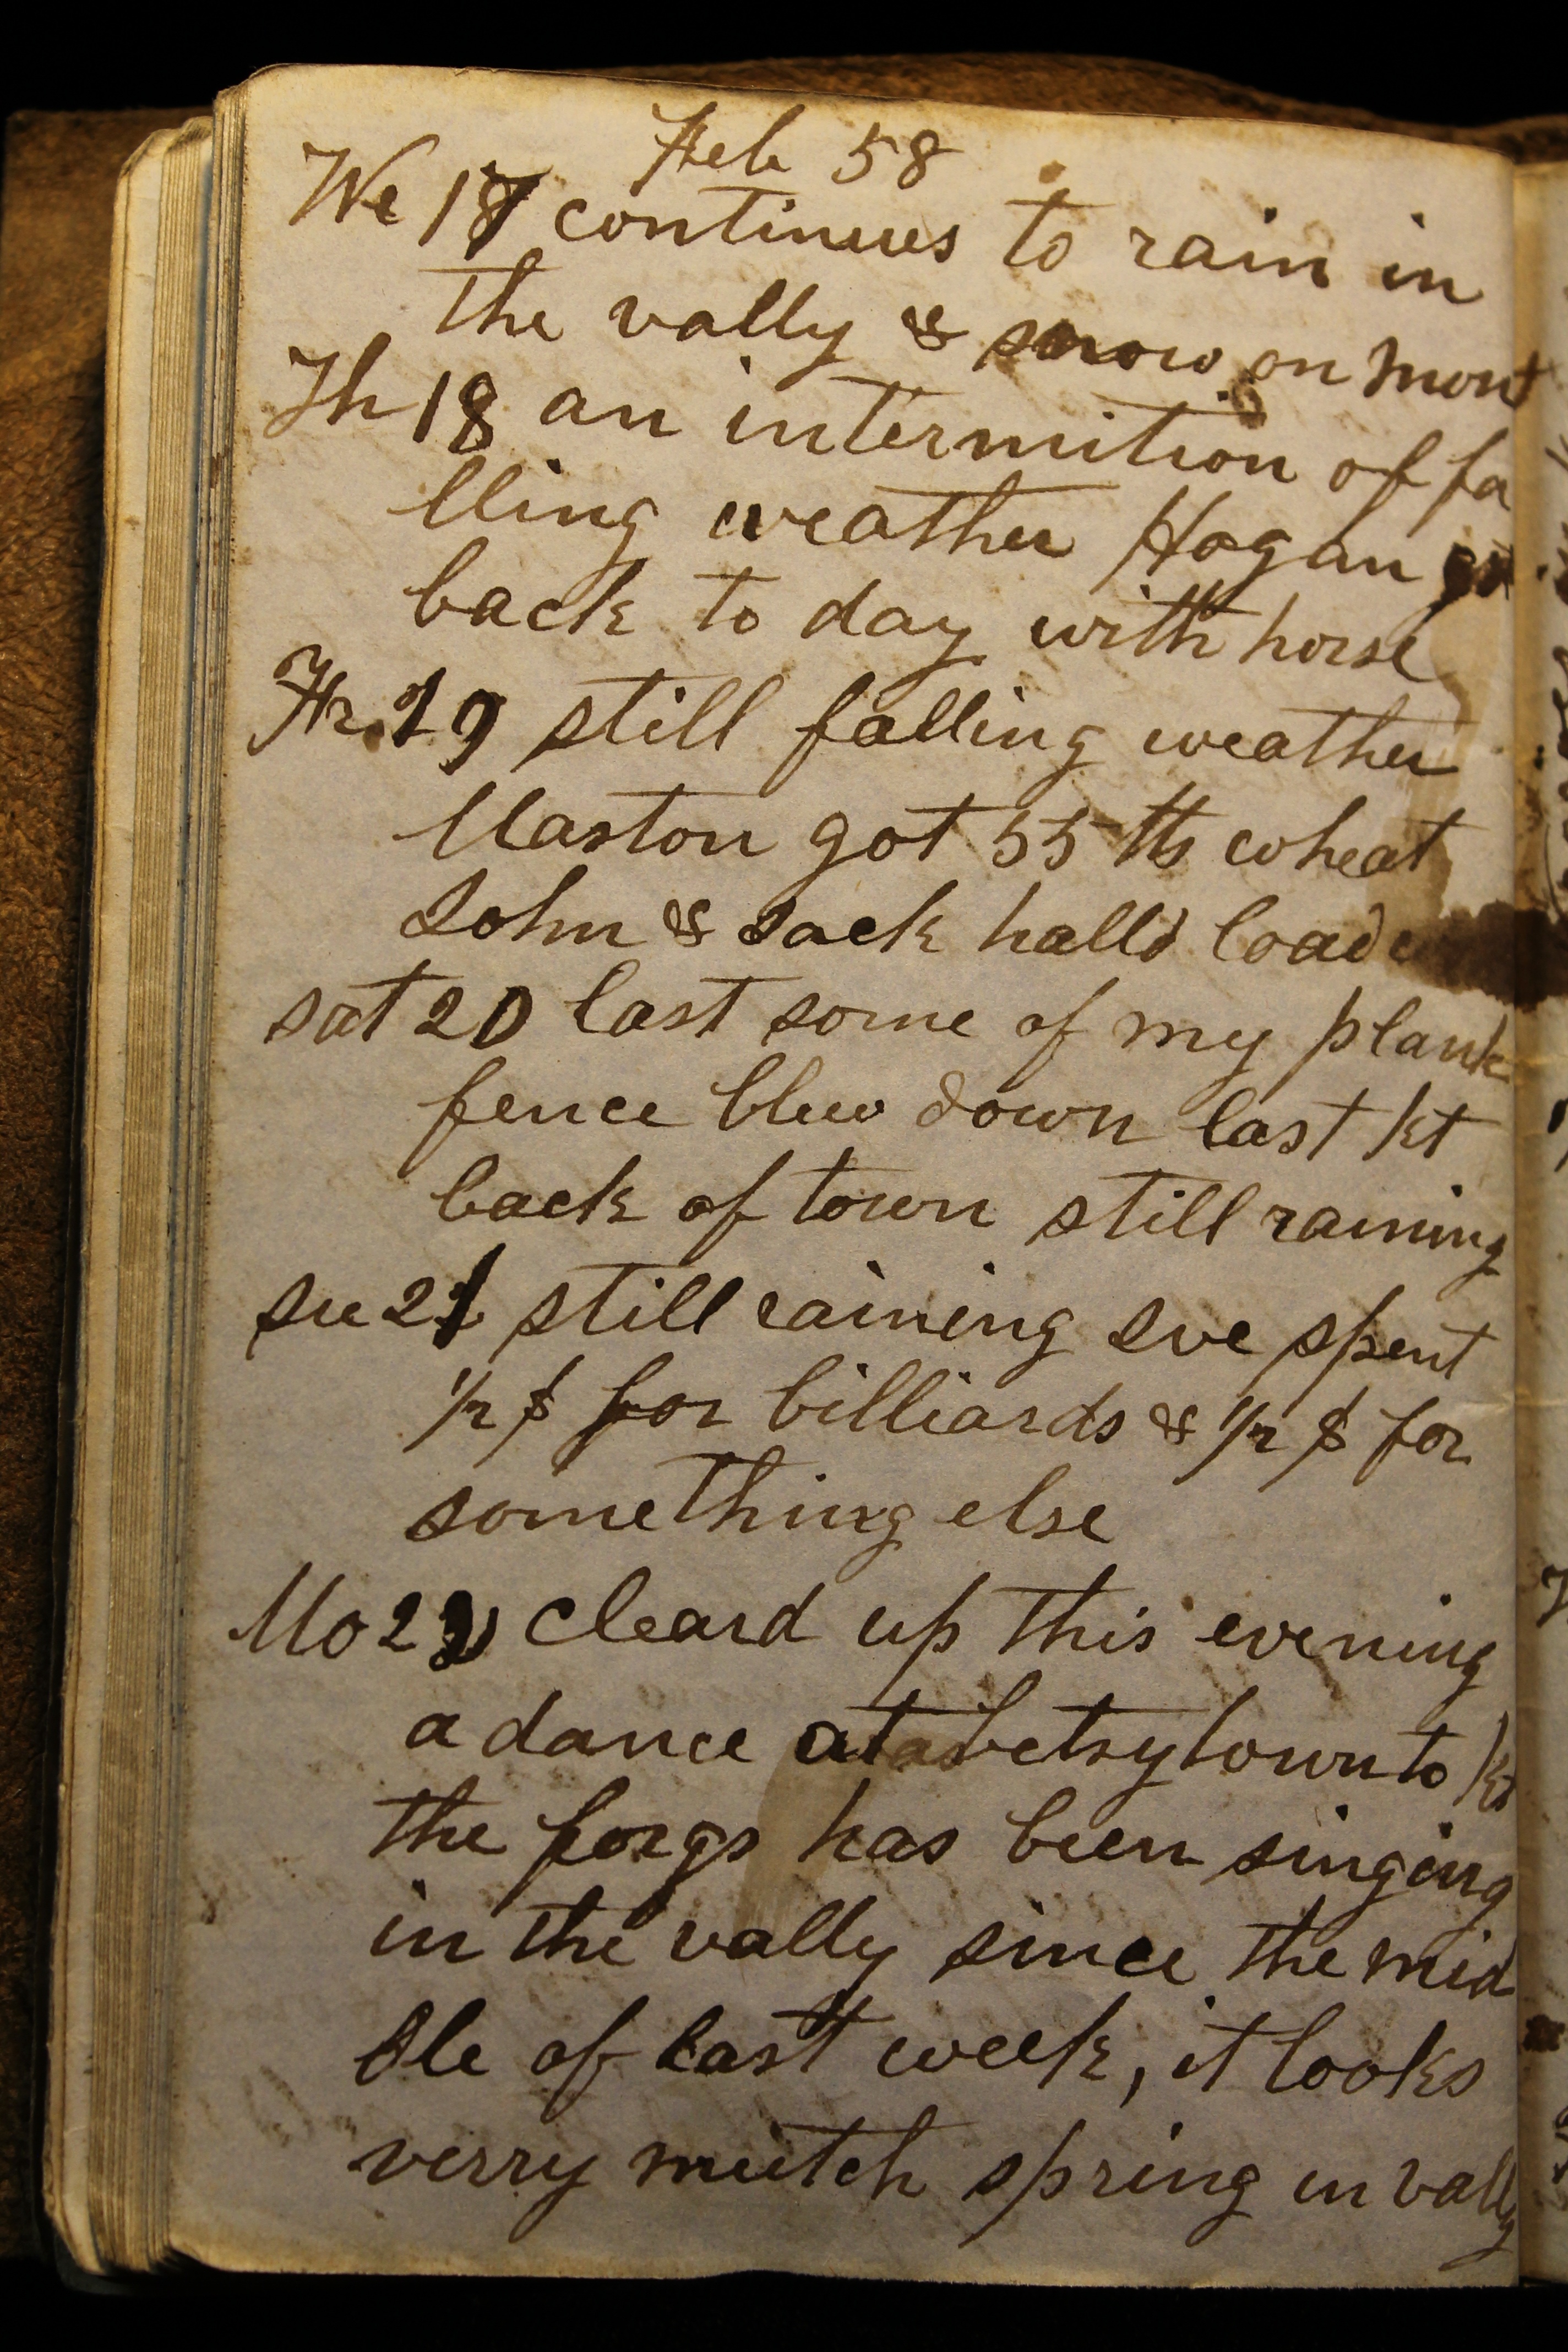 Feb 58
We 17 continues to rain in
the vally & snow on mont
Th 18 an intermition of fa
lling weather Hogan got
back to day with horse
Fr. 19 still falling weather
Maston got 55 lbs wheat
John & Jack halld load
sat 20 last some of my plank
fence blew down last Kt
back of town still raining
su 21 still raining Eve spent
1/2 $ for billiards & 1/2 $ for
something else
Mo 22 Cleard up this evening
a dance at betsytown to Kt
the forgs has been singing
in the vally since the mid
dle of last week, it looks
verry mutch spring in vally